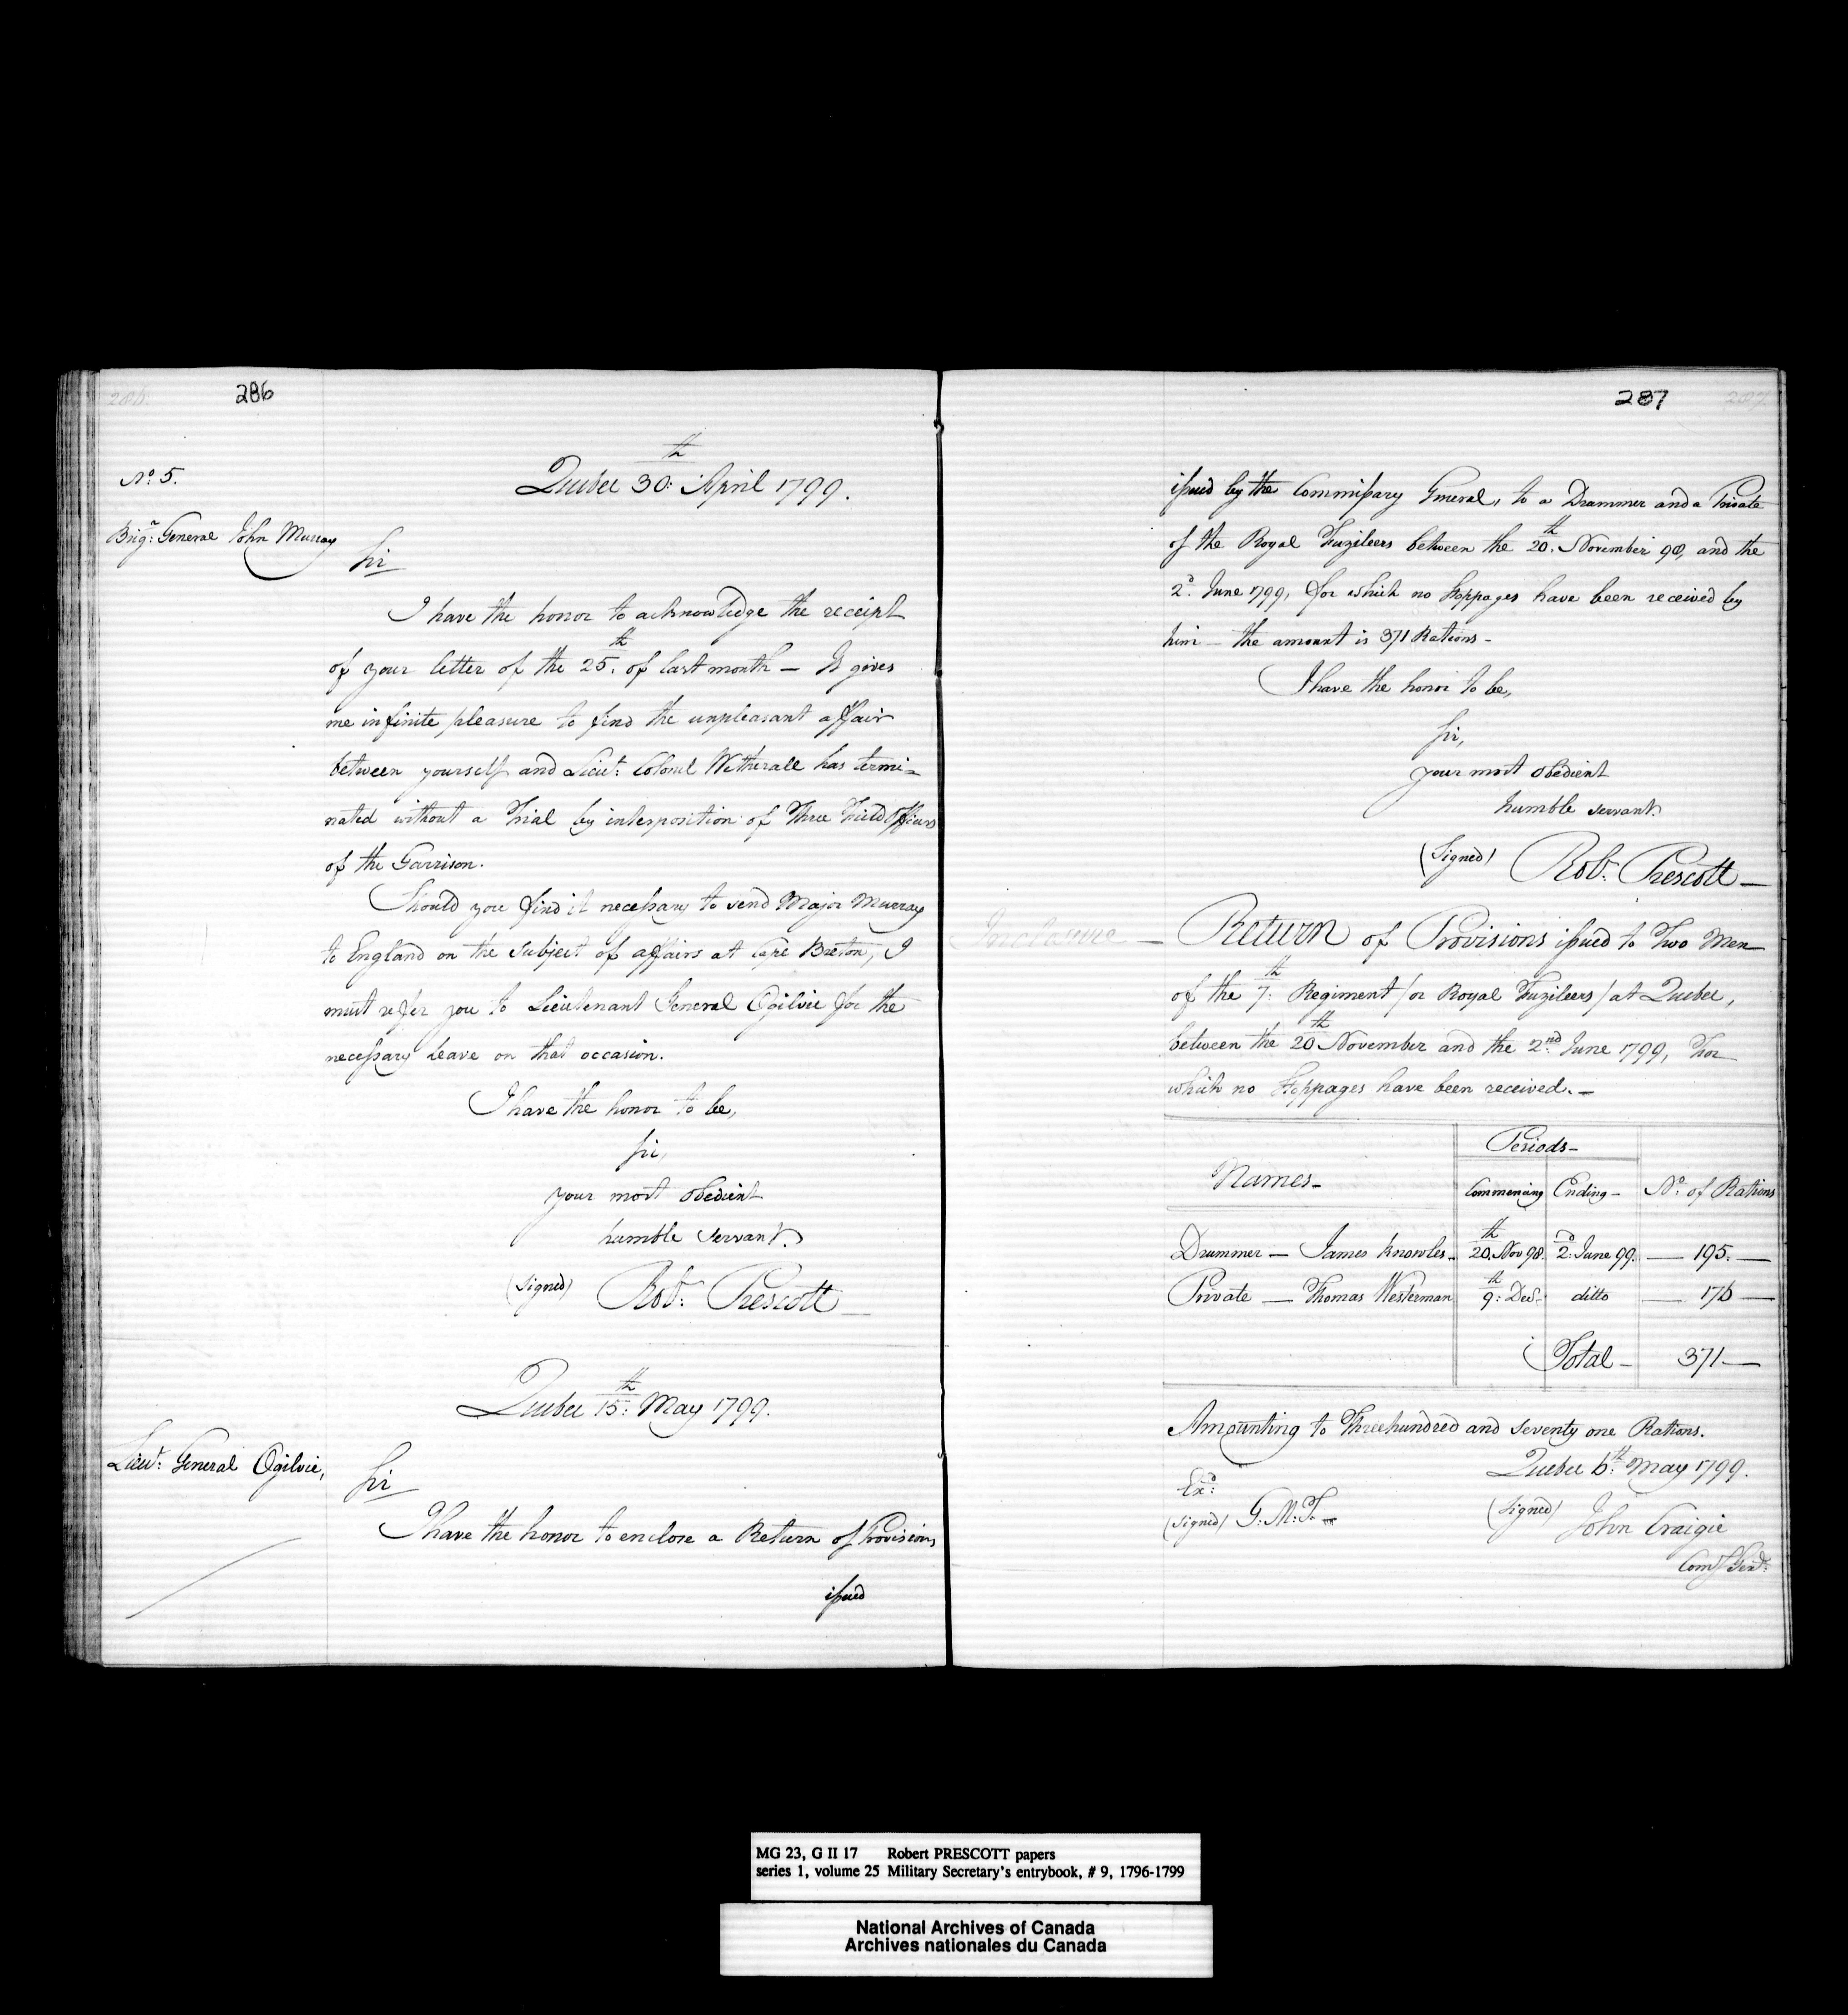 286
No. 5.
Quebec 30th. April 1799.
Brigr. General John Murray
Sir
I have the honor to acknowledge the receipt
of your letter of the 25th. of last month — It gives
me infinite pleasure to find the unpleasant affair
between yourself and Lieut. Colonel Wetherall has termi=
nated without a Trial by interposition of Three Field Officers
of the Garrison.
Should you find it necessary to send Major Murray
to England on the subject of affairs at Cape Breton, I
must refer you to Lieutenant General Ogilvie for the
necessary leave on that occasion.
I have the honor to be,
Sir,
your most obedient
humble servant.
(Signed) Robt. Prescott —
Quebec 15th. May 1799.
Lieut. General Ogilvie,
Sir
I have the honor to enclose a Return of Provisions
issued
287
issued by the Commissary General, to a Drummer and a Private
of the Royal Fuzileers between the 20th. November 98, and the
2d. June 1799, for which no stoppages have been received by
him — the amount is 371 Rations —
I have the honor to be,
Sir,
your most obedient
humble servant.
(Signed) Robt. Prescott —
Inclosure — Return of Provisions issued to Two Men
of the 7th. Regiment /or Royal Fuzileers/ at Quebec,
between the 20th November and the 2nd. June 1799, For
which no Stoppages have been received. —
Periods —
Names — Commencing Ending — No. of Rations
Drummer — James Knowles — 20th. Nov 98. 2d. June 99. — 195. —
Private — Thomas Westerman 9th. Decr. ditto — 176 —
Total — 371 —
Amounting to Three hundred and seventy one Rations.
Quebec 6th. May 1799.
Exd.
(Signed) G. M. T. —
(Signed) John Craigie
Comy. Genl.
MG 23, G II 17 Robert PRESCOTT papers
series 1, volume 25 Military Secretary's entrybook, # 9, 1796-1799
National Archives of Canada
Archives nationales du Canada